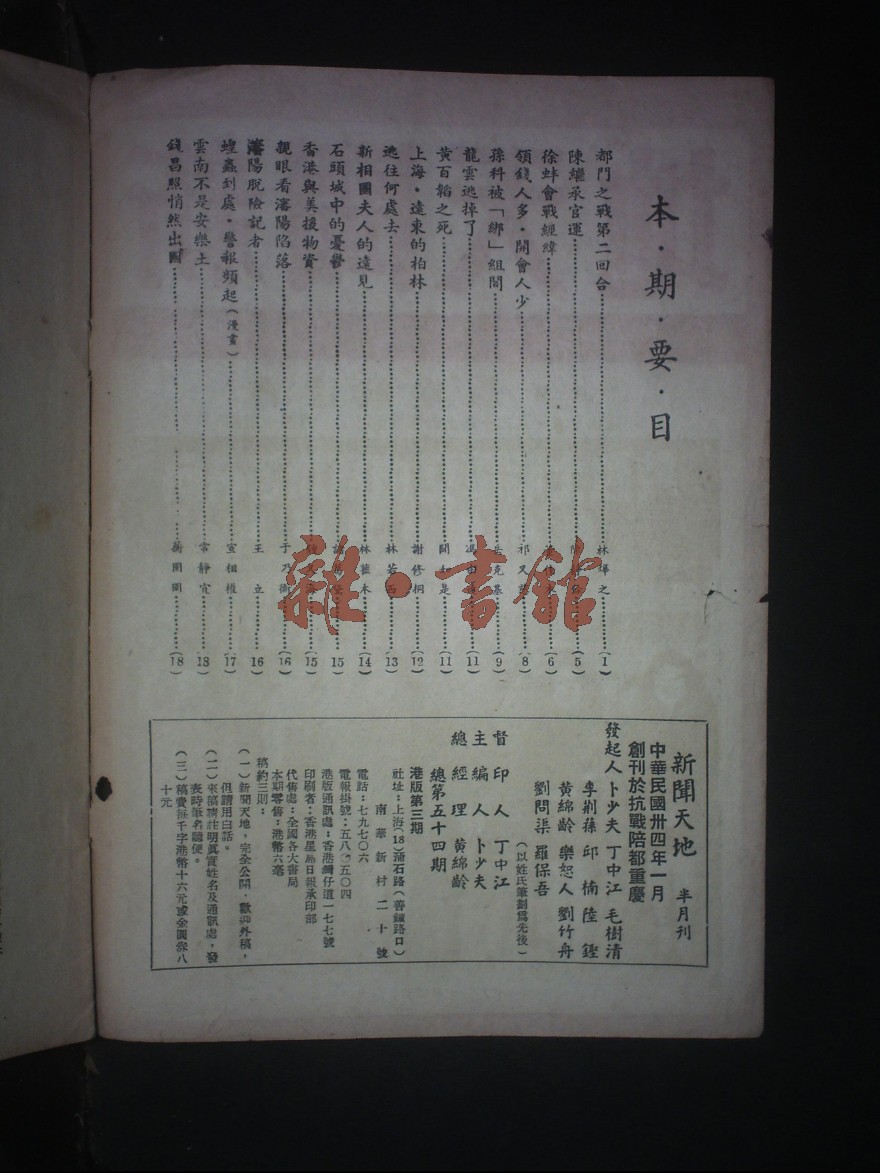 本·期·要·目
都門之戰第二回合 林 之 (1)
陳繼承官運 (5)
徐蚌會戰經緯 (6)
領錢人多·開會人少 祁又 (8)
孫科被「綁」組閣 克基 (9)
龍雲逃掉了 馮由 (11)
黃百韜之死 聞知是 (11)
上海·遠東的柏林 謝修桐 (12)
逃往何處去 林若西 (13)
新相國夫人的遠見 林藍木 (14)
石頭城中的憂鬱 (15)
香港與美援物資 (15)
親眼看瀋陽陷落 于乃衡 (16)
瀋陽脫險記者 王立 (16)
蝗蟲到處·警報頻起(漫畫) 宣相權 (17)
雲南不是安樂土 常靜宜 (18)
錢昌照悄然出國 圍圍 (18)
雜·書館
新聞天地 半月刊
中華民國卅四年一月
創刊於抗戰陪都重慶
發起人 卜少夫 丁中江 毛樹清
李荊蓀 邱楠 陸鏗
黃綿齡 樂恕人 劉竹舟
劉問渠 羅保吾
(以姓氏筆劃為先後)
督印人 丁中江
主編人 卜少夫
總經理 黃綿齡
總第五十四期
港版第三期
社址:上海(18)蒲石路(善鐘路口)
南華新村二十號
電話:七九七〇六
電報掛號:五八〇五〇四
港版通訊處:香港灣仔道一七七號
印刷者:香港星島日報承印部
代售處:全國各大書局
本期零售:港幣六毫
稿約三則:
(一)新聞天地,完全公開,歡迎外稿,
但請用白話。
(二)來稿請註明真實姓名及通訊處,發
表時筆名聽便。
(三)稿費每千字港幣十六元或金圓券八
十元